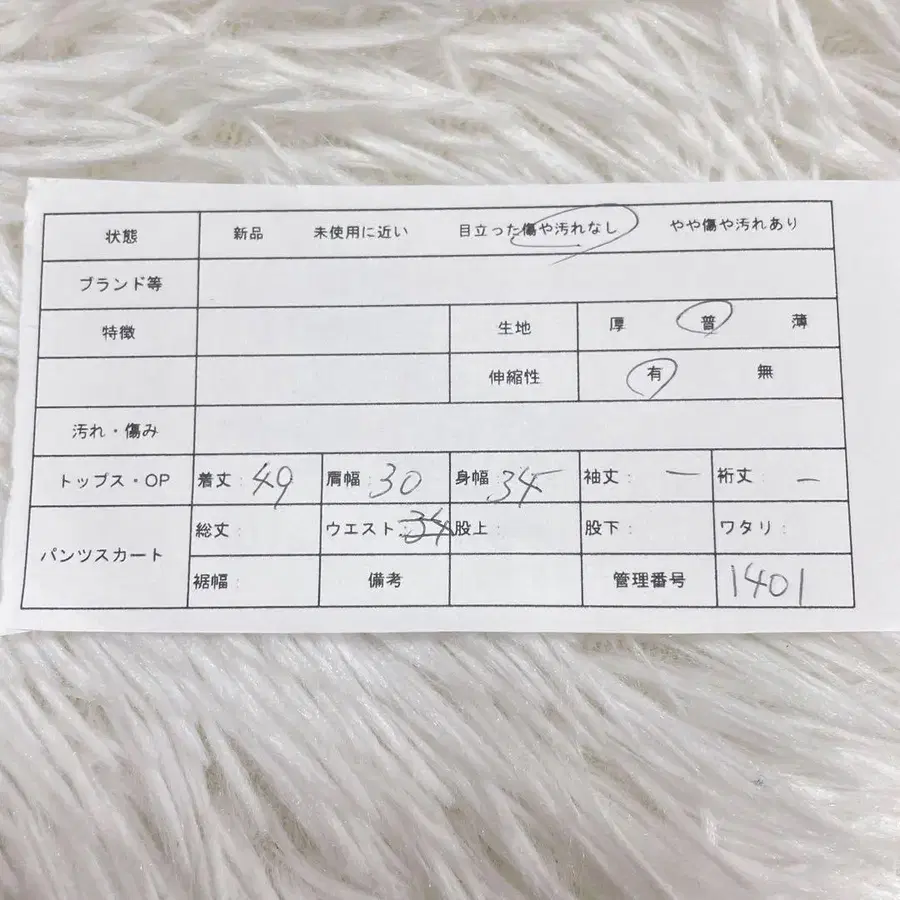 状態 新品 未使用に近い 目立った傷や汚れなし やや傷や汚れあり
ブランド等
特徴 生地 厚 普 薄
伸縮性 有 無
汚れ・傷み
トップス・OP 着丈: 49 肩幅: 30 身幅: 34 袖丈: ー 裄丈: ー
パンツスカート 総丈: ウエスト: 34 股上: 股下: ワタリ:
裾幅: 備考 管理番号 1401